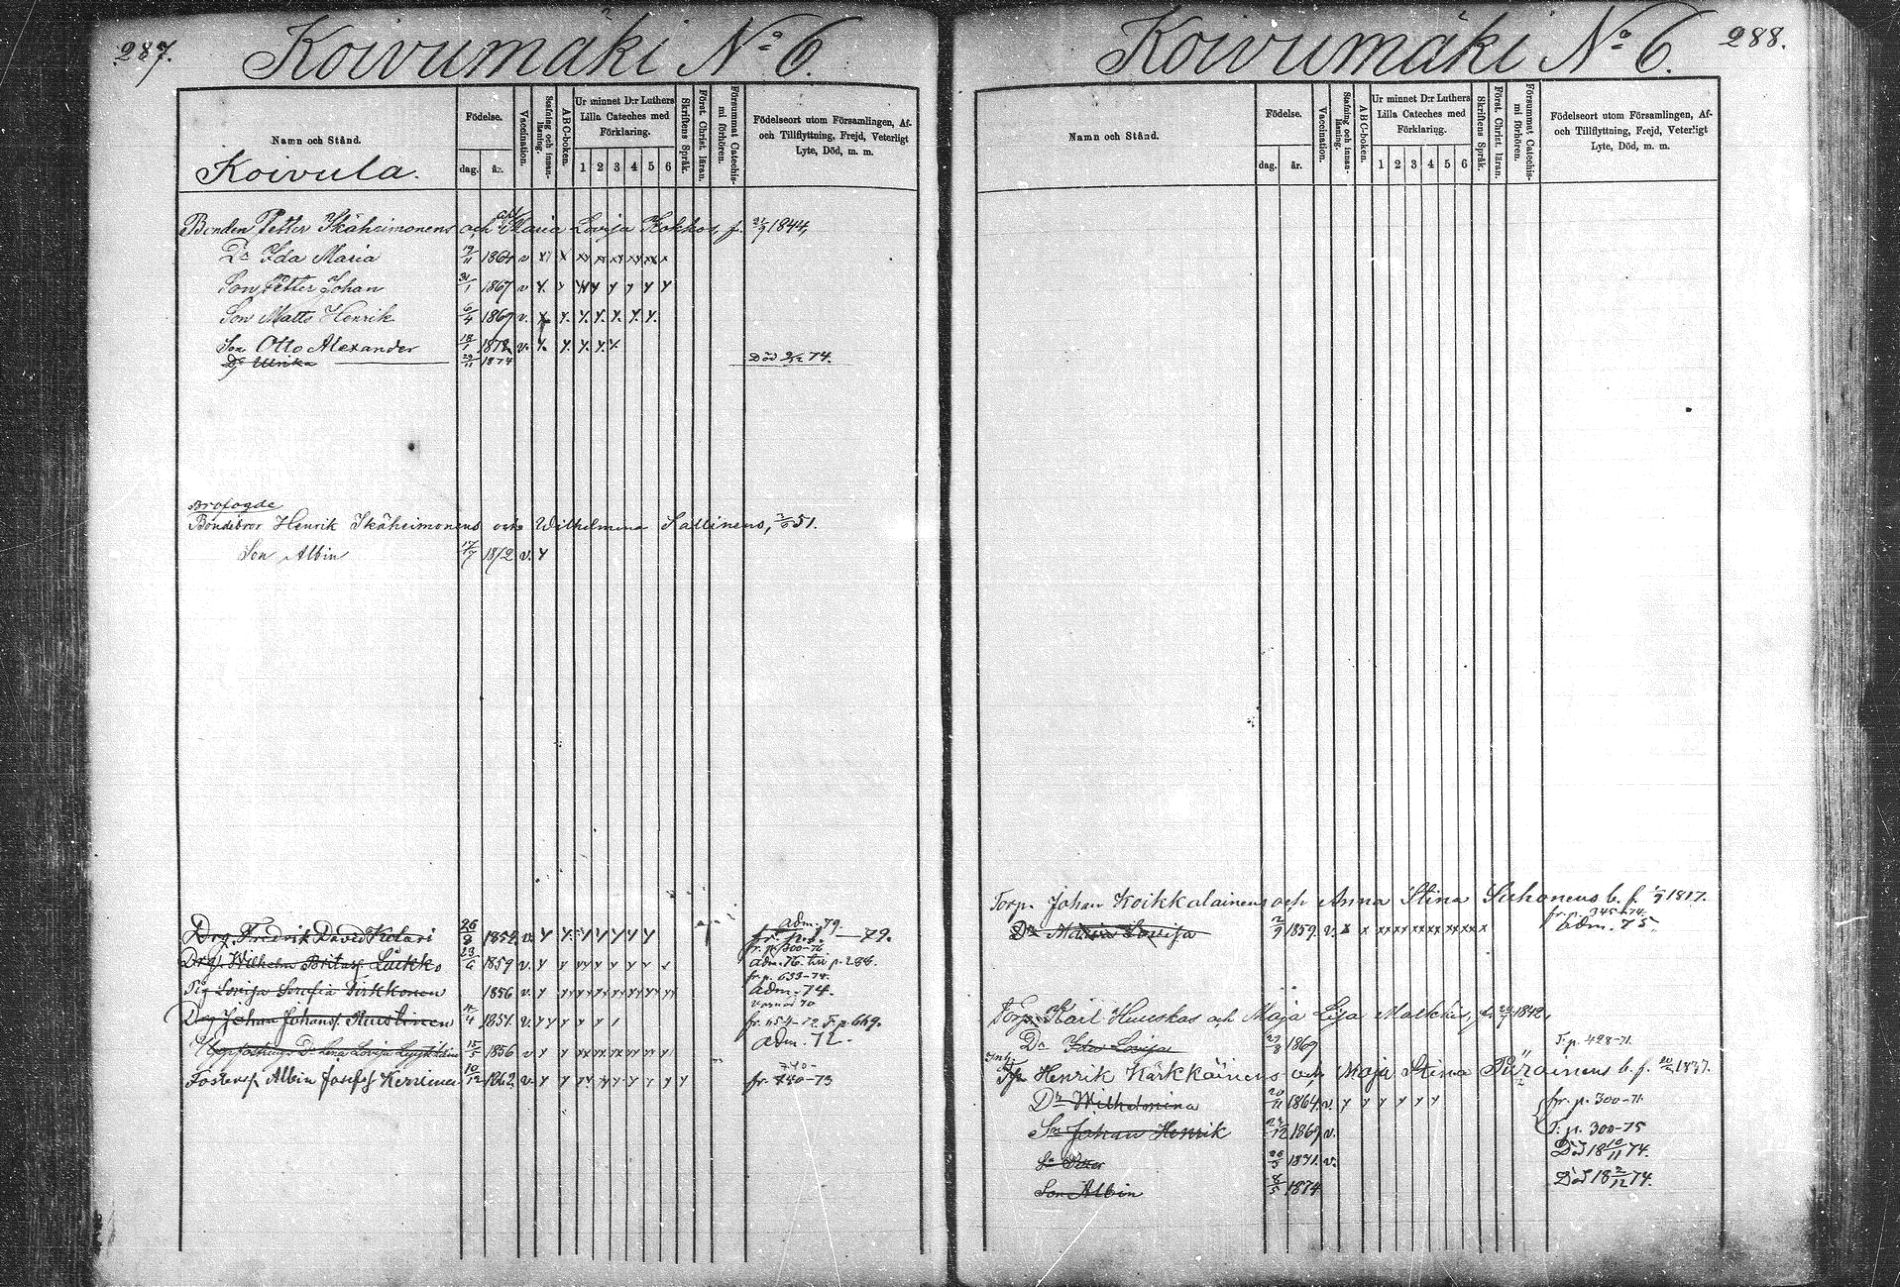 287.
Koivumäki No 6.
Namn och Stånd.
Födelse.
dag.
år.
Vaccination.
Stafning och innan-läsning.
ABC-boken.
Ur minnet D:r Luthers
Lilla Cateches med
Förklaring.
1 2 3 4 5 6
Skriftens Språk.
Först. Christ. läran.
Försummat Catechis-mi förhören.
Födelseort utom Församlingen, Af-
och Tillflyttning, Frejd, Veterligt
Lyte, Död, m. m.
Koivula.
Bonden Petter Ikäheimonens och Maria Lovisa Kokkos, f. 1844,
Dr Ida Maria 17/11 1864 v
Son Petter Johan 31/1 1867 v
Son Matts Henrik 6/4 1869 v.
Son Otto Alexander 18/1 1872 v.
Dr Ulrika 29/11 1874 Död 74.
Brofogde
Bondebror Henrik Ikäheimonens och Wilhelmina Sallinens, 51.
Son Albin 17/7 1872 v.
adm. 79.
Drg. Fredrik David Kelari 26/8 1852 v. 79.
fr. p. 300-76
Drg. Wilhelm Britasf. Luikko 23/6 1859 v. adm. 76. p. 288.
fr. p. 633-74.
Pig Lovisa Serafia Pirkkonen 1856 v. adm. 74.
Drg Johan Johansf. Mustinen 1851 v. fr. 454-72 T. p 669.
15/5 1856 v adm. 72.
Fosterss. Albin Josefsf Kerrinen 10/12 1862 v fr. 740-73
288.
Koivumäki No 6.
Namn och Stånd.
Födelse.
dag.
år.
Vaccination.
Stafning och innan-läsning.
ABC-boken.
Ur minnet D:r Luthers
Lilla Cateches med
Förklaring.
1 2 3 4 5 6
Skriftens Språk.
Först. Christ. läran.
Försummat Catechis-mi förhören.
Födelseort utom Församlingen, Af-
och Tillflyttning, Frejd, Veterligt
Lyte, Död, m. m.
Torp. Johan Koikkalainens och Anna Stina Suhonens b. f. 1817.
fr. p. 345-74.
Dr Maria Lovisa 2/9 1859 v. adm. 75.
Torp. Karl Huuskos och Maja Lisa Malkkis, f. 1842,
Dr Ida Lovisa 27/8 1869 T. p. 428-71
Inh.
Torp. Henrik Kärkkäinens och Maja Stina Piirainens b. f. 1837.
Dr Wilhelmina 20/11 1864 v. fr. p. 300-71.
Son Johan Henrik 1869 v. T. p. 300-75
Sn Petter 26/5 1871 v. Död 18 10/11 74.
Son Albin 8/5 1874 Död 18 2/12 74.